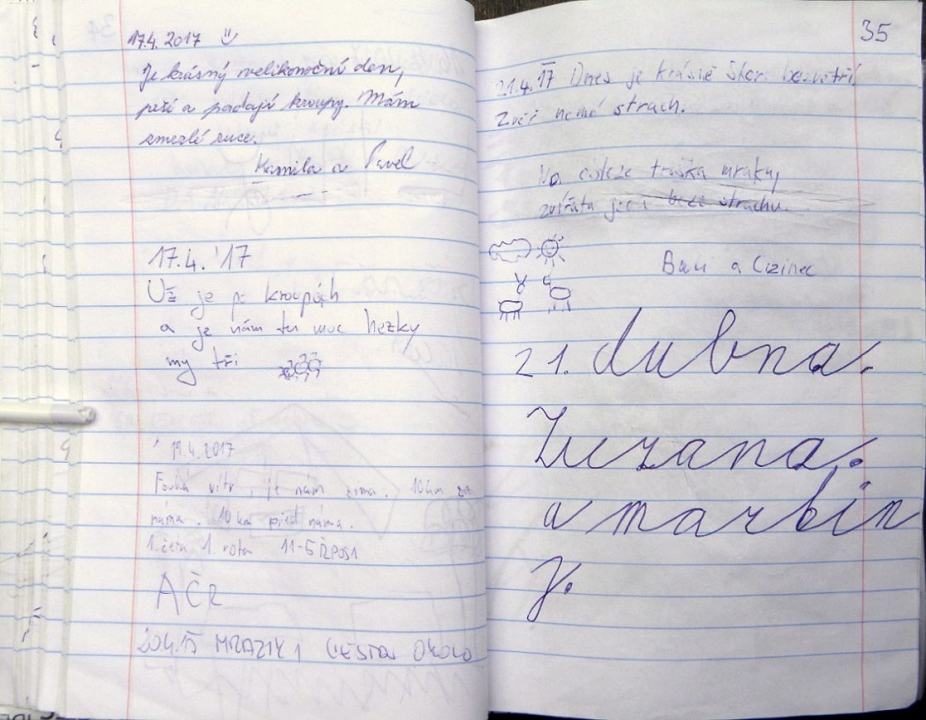 17.4. 2017
Je krásný velikonoční den,
prší a padají kroupy. Mám
zmrzlé ruce.
Kamila a Pavel
17.4. '17
Už je po kroupách
a je nám tu moc hezky
my tři
19.4.2017
Fouká vítr, je nám zima. 10km za
náma. 10 km před náma.
1. četa 1. rota
AČR
20.4.17 MRAZIK 1 CESTOU OKOLO
35
21.4.17 Dnes je krásně skoro bezvětří
Zvěř nemá strach.
Na obloze mraky,
zvířata jsou beze strachu.
a Cizinec
21. dubna.
Zuzana.
a martin
J.